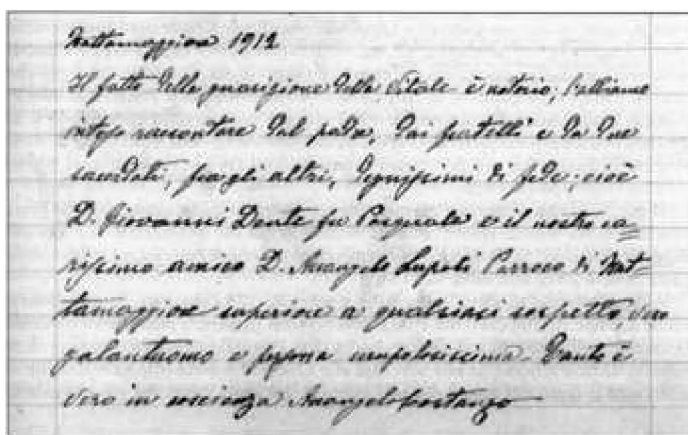 Frattamaggiore 1912
Il fatto della guarigione della Vitale è notorio, l'abbiamo
inteso raccontare dal padre, dai fratelli e da due
sacerdoti, fra gli altri, degnissimi di fede; cioè
D. Giovanni Dente fu Pasquale e il nostro ca=
rissimo amico D. Arcangelo Lupoli Parroco di Frat=
tamaggiore superiore a qualsiasi sospetto, vero
galantuomo e persona scrupolosissima. Tanto è
vero in coscienza Arcangelo Costanzo